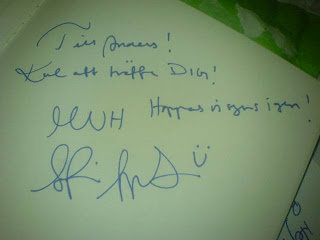 Till Anders!
Kul att träffa DIG!
MVH Hoppas vi syns igen!